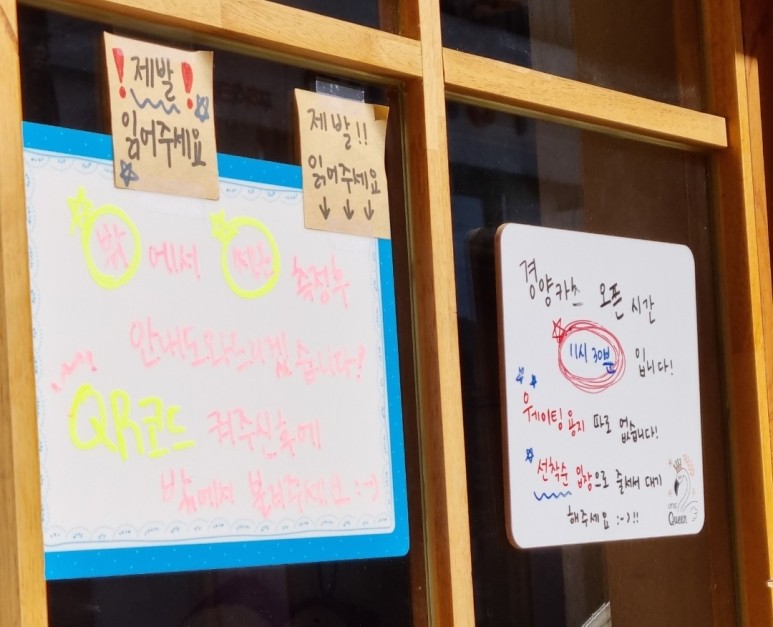 !제발!
읽어주세요
제발!!
읽어주세요
↓↓↓
밖에서 체온 측정후
안내도와드리겠습니다!
QR코드 켜주신후에
밖에서 불러주세요 :-)
경양카츠 오픈 시간
11시 30분 입니다!
웨이팅 용지 따로 없습니다!
선착순 입장으로 줄서서 대기
해주세요 :-)!!
Queen